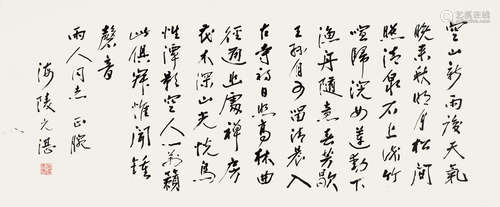 空山新雨後天氣
晚來秋明月松間
照清泉石上流竹
喧歸浣女蓮動下
漁舟隨意春芳歇
王孫自可留清晨入
古寺初日照高林曲
徑通幽處禪房
花木深山光悅鳥
性潭影空人心萬籟
此俱寂惟聞鐘
磬音
雨人同志 正腕
海陵